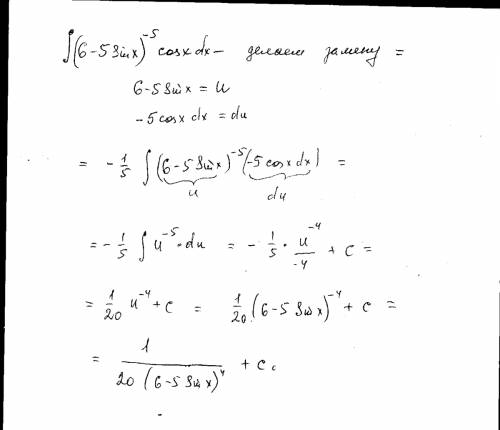 ∫(6-5 sin x)^-5 cosx dx - делаем замену =
6-5 sin x = u
-5 cosx dx = du
= - 1/5 ∫ (6-5 sin x)^-5 (-5 cosx dx) =
u du
= - 1/5 ∫ u^-5 · du = - 1/5 · u^-4/-4 + c =
= 1/20 u^-4 + c = 1/20 (6-5 sin x)^-4 + c =
= 1/(20 (6-5 sin x)^4) + c.